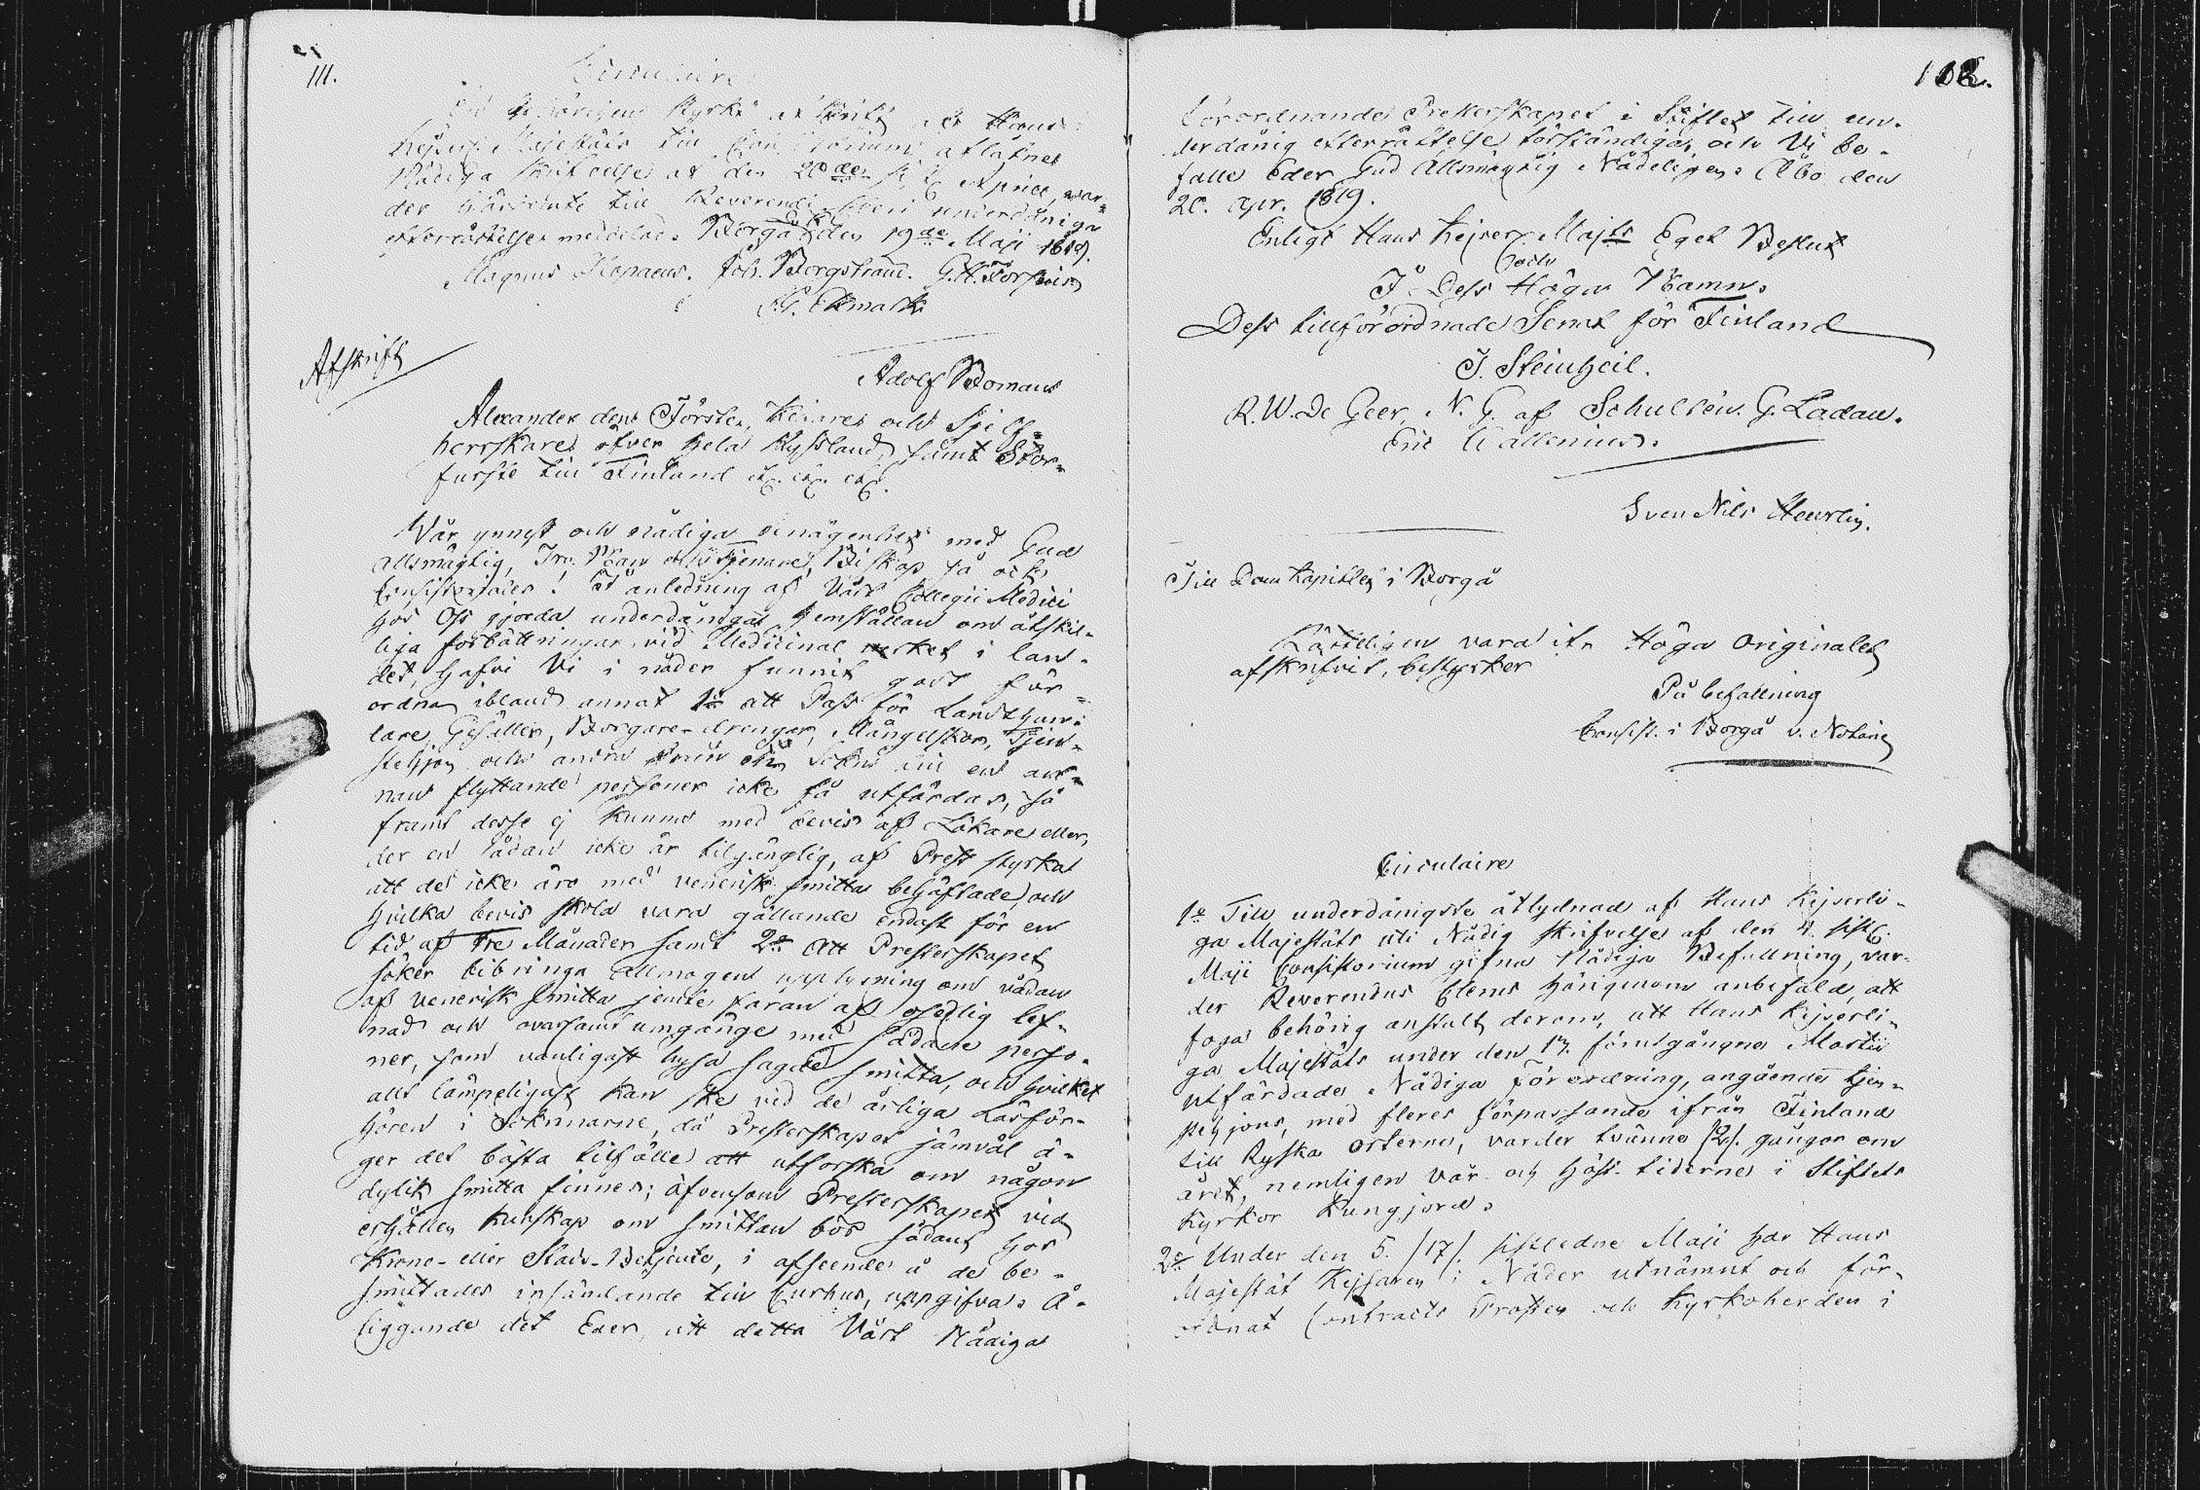 111.
Circulaire
En behörigen styrkt afskrift af Hans
Kejserl. Majestäts till Consistorium aflåtne
Nådiga skrifvelse af den 20de sistl. Aprill, var-
der härjemte till Reverendi Cleri underdåniga
efterrättelse meddelad. Borgå den 19de Maji 1819.
Magnus Alopaeus. Joh. Borgstrand. G. H. Forsius
G. Ekmark
Adolf Boman
Afskrift
Alexander den Förste, Kejsare och Sjelf-
herrskare öfver hela Ryssland, samt Stor-
furste till Finland etc. etc. etc.
Vår ynnest och nådiga benägenhet med Gud
allsmägtig, Tro-Man och Tjenare, Biskop så ock
Consistoriales! I anledning af Vårt Collegii Medici
hos Oss gjorda underdåniga hemställan om åtskil-
liga förbättringar vid Medicinal verket i lan-
det, hafve Vi i nåder funnit godt för-
ordna ibland annat 1o att Pass för Landthand-
lare, Gesäller, Borgare-drengar, Månglerskor, Tjen-
stehjon och andra från en Sokn till en an-
nan flyttande personer icke få utfärdas, så
framt desse ej kunna med bevis af Läkare eller,
der en sådan icke är tilgänglig, af Prest styrka
att de icke äro med venerisk smitta behäftade, och
hvilka bevis skola vara gällande endast för en
tid af tre Månader samt 2o att Presterskapet
söker bibringa allmogen upplysning om vådan
af venerisk smitta jemte faran af osedlig lef-
nad och ovarsamt umgänge med sådane perso-
ner, som vanligast hysa sagde smitta, och hvilket
allt lämpeligast kan ske vid de årliga Läsför-
hören i Soknarne, då Presterskapet jämväl ä-
ger det bästa tilfälle att utforska om någon
dylik smitta finnes; äfvensom Presterskapet vid
erhållen kunskap om smittan bör sådant hos
Krono- eller Stads-Betjente, i afseende å de be-
smittades insändande till Curhus, uppgifva. Å-
liggande det Eder, att detta Vårt Nådiga
112.
förordnande Presterskapet i Stiftet till un-
derdånig efterrättelse förständiga, och Vi be-
falle Eder Gud Allsmägtig Nådeligen. Åbo den
20. Apr. 1819.
Enligt Hans Kejserl. Majts Eget Beslut
och
I Dess Höga Namn.
Dess tillförordnade Senat för Finland
F. Steinheil.
R. W. De Geer. N. G. af Schultén. G. Ladau.
Eric Wallenius.
Sven Nils Heurlin.
Till Dom Kapitlet i Borgå
Rätteligen vara ifr. Höga Originalet
afskrifvit, bestyrker
På befallning
Consist. i Borgå v. Notarie
Circulaire
1o Till underdånigste åtlydnad af Hans Kejserli-
ga Majestäts uti Nådig skrifvelse af den 4. sistl.
Maji Consistorium gifna Nådiga Befallning, var-
der Reverendus Clerus härigenom anbefald, att
foga behörig anstalt derom, att Hans Kejserli-
ga Majestäts under den 17. förutgångne Martii
utfärdade Nådiga Förordning, angående tjen-
stehjons, med fleres förpassande ifrån Finland
till Ryska orterne, varder tvänne /2/. gångor om
året, nemligen vår- och höst-tiderne i Stiftets
Kyrkor kungjord.
2o Under den 5. /17/. sistledne Maji har Hans
Majestät Kejsaren i Nåder utnämnt och för-
ordnat Contracts Prosten och Kyrkoherden i